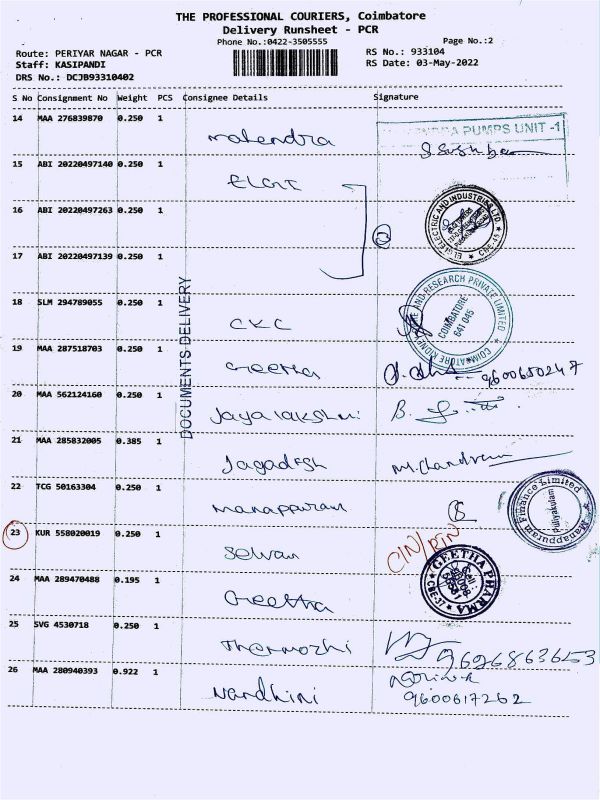 THE PROFESSIONAL COURIERS, Coimbatore
Delivery Runsheet - PCR
Phone No.:0422-3505555
Page No.:2
Route: PERIYAR NAGAR - PCR
RS No.: 933104
Staff: KASIPANDI
RS Date: 03-May-2022
DRS No.: DCJB93310402
S No Consignment No Weight PCS Consignee Details Signature
14 MAA 276839870 0.250 1
Mahendra
PUMPS UNIT -1
15 ABI 20220497140 0.250 1
ELGI
16 ABI 20220497263 0.250 1
17 ABI 20220497139 0.250 1
ELGI ELECTRIC AND INDUSTRIES LTD.
CBE-45
DOCUMENTS DELIVERY
18 SLM 294789055 0.250 1
CKC
COIMBATORE KIDNEY AND RESEARCH PRIVATE LIMITED
COIMBATORE
641 045
19 MAA 287518703 0.250 1
Geetha
9600650247
20 MAA 562124160 0.250 1
Jayalakshmi
B.
21 MAA 285832005 0.385 1
Jagadesh
M. Chandran
22 TCG 50163304 0.250 1
Manappuram
Manappuram Finance Limited
Puliyakulam
23 KUR 558020019 0.250 1
Selvan
CIN/RTN
24 MAA 289470488 0.195 1
Geetha
GEETHA PHARMA
CBE-37
25 SVG 4530718 0.250 1
Thenmozhi
9626863653
26 MAA 280940393 0.922 1
Nandhini
9600617262